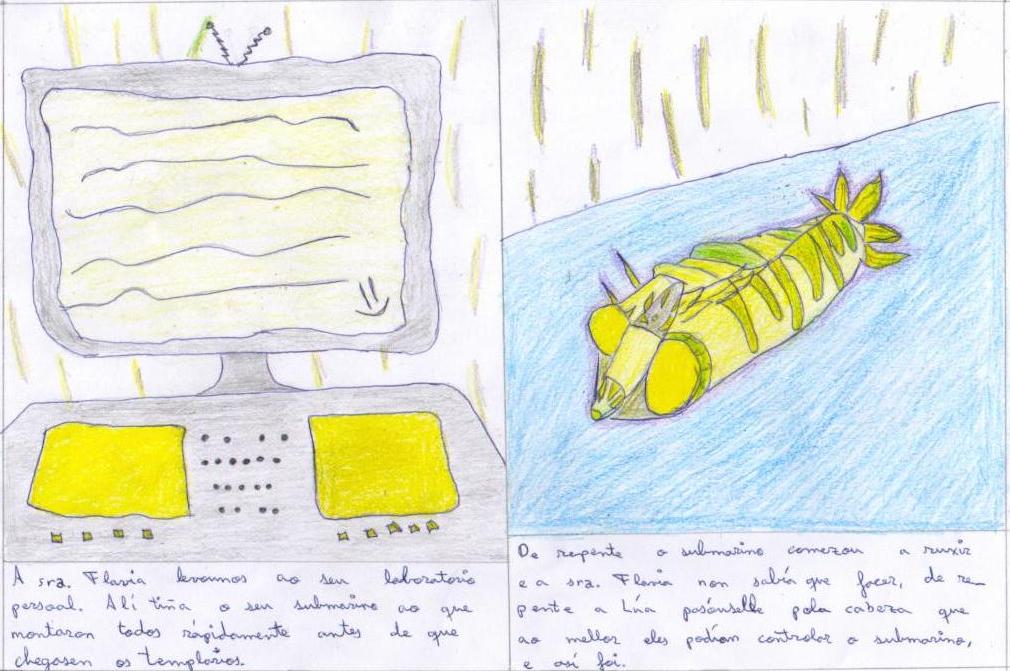 A sra. Flavia levounos ao seu laboratorio
persoal. Alí tiña o seu submarino ao que
montaron todos rápidamente antes de que
chegasen os templarios.
De repente o submarino comezou a ruxir
e a sra. Flavia non sabía que facer, de re_
pente a Lúa pasóuselle pola cabeza que
ao mellor eles podían controlar o submarino,
e así foi.